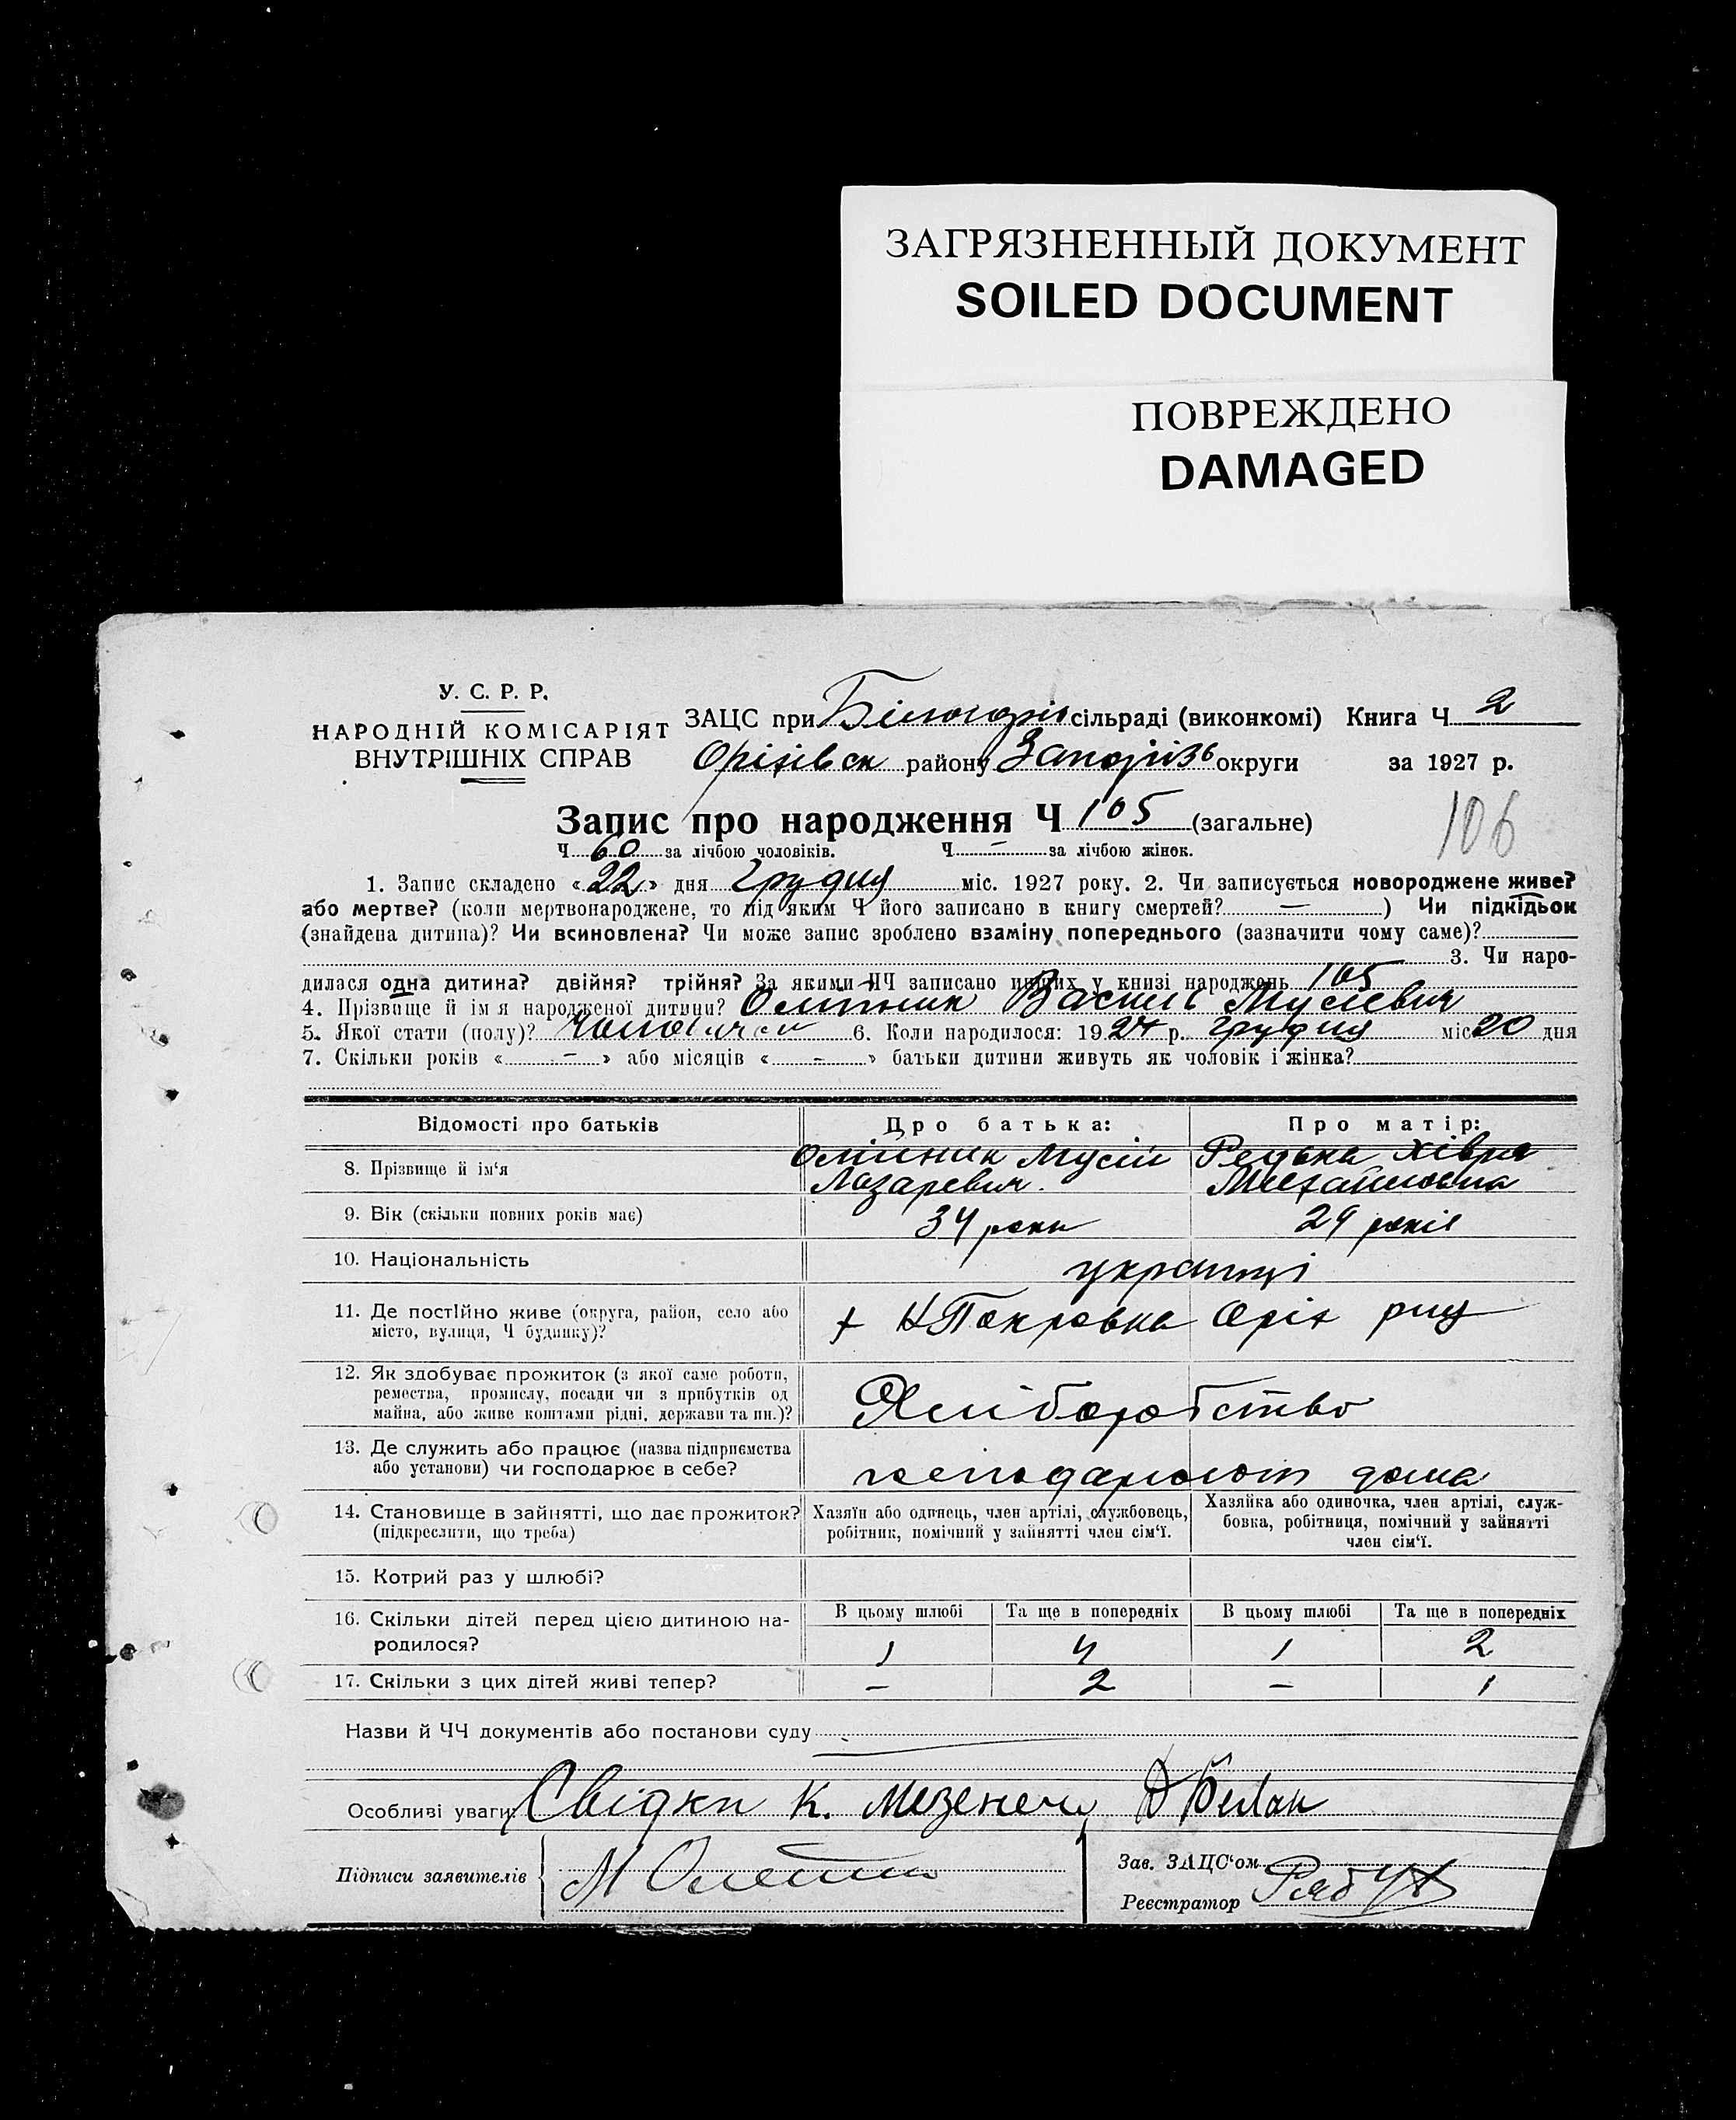 ЗАГРЯЗНЕННЫЙ ДОКУМЕНТ
SOILED DOCUMENT
ПОВРЕЖДЕНО
DAMAGED
У. С. Р. Р.
НАРОДНІЙ КОМІСАРІЯТ
ВНУТРІШНІХ СПРАВ
ЗАЦС при Білогорів сільраді (виконкомі) Книга Ч 2
Оріхівськ району Запоріз округи за 1927 р.
Запис про народження Ч 105 (загальне)
106
Ч 60 за лічбою чоловіків. Ч — за лічбою жінок.
1. Запис складено «22» дня Грудня міс. 1927 року. 2. Чи записується новороджене живе?
або мертве? (коли мертвонароджене, то під яким Ч його записано в книгу смертей? — ) Чи підкідьок
(знайдена дитина)? Чи всиновлена? Чи може запис зроблено взаміну попереднього (зазначити чому саме)?
3. Чи наро-
дилася одна дитина? двійня? трійня? За якими ЧЧ записано инших у книзі народжень 105
4. Прізвище й ім я народженої дитини? Олійник Василь Мусієвич
5. Якої стати (полу)? чоловічеи 6. Коли народилося: 1927 р. грудня міс 20 дня
7. Скільки років « — » або місяців « — » батьки дитини живуть як чоловік і жінка?
Відомості про батьків Про батька: Про матір:
8. Прізвище й ім‘я Олійник Мусій Лазаревич. Редька Хівря Михайловна
9. Вік (скільки повних років має) 34 роки 29 років
10. Національність українці
11. Де постійно живе (округа, район, село або
місто, вулиця, Ч будинку)? х НПокровка Оріх рну
12. Як здобуває прожиток (з якої саме роботи,
ремества, промислу, посади чи з прибутків од
майна, або живе коштами рідні, держави та ин.)? Хліборобство
13. Де служить або працює (назва підприємства
або установи) чи господарює в себе? господарюют дома
14. Становище в зайнятті, що дає прожиток?
(підкреслити, що треба)
Хазяїн або одинець, член артілі, службовець,
робітник, помічний у зайнятті член сім‘ї.
Хазяйка або одиночка, член артілі, служ-
бовка, робітниця, помічний у зайнятті
член сім‘ї.
15. Котрий раз у шлюбі?
16. Скільки дітей перед цією дитиною на-
родилося?
В цьому шлюбі Та ще в попередніх В цьому шлюбі Та ще в попередніх
1 4 1 2
17. Скільки з цих дітей живі тепер? — 2 — 1
Назви й ЧЧ документів або постанови суду
Особливі уваги: Свідки К. Мезенец Д Билан
Підписи заявителів М Олейник
Зав. ЗАЦС‘ом
Реєстратор